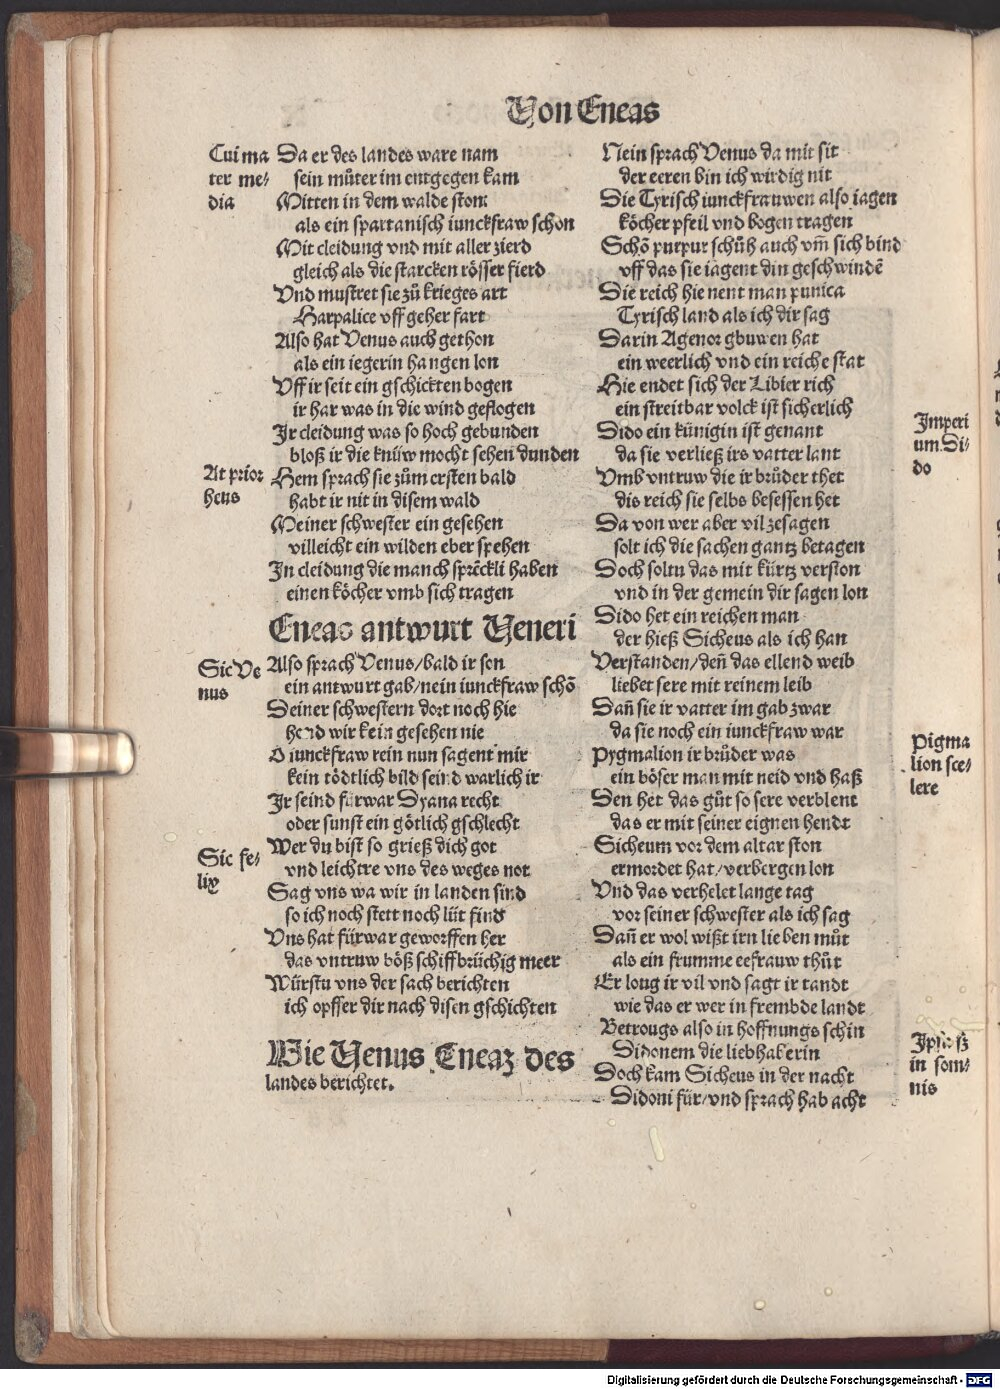 Von Eneas
Cui ma
ter me-
dia
Da er des landes ware nam
sein můter im entgegen kam
Mitten in dem walde ston
als ein spartanisch iunckfraw schon
Mit cleidung vnd mit aller zierd
gleich als die starcken rösser fierd
Vnd mustret sie zů krieges art
Harpalice vff geher fart
Also hat Venus auch gethon
als ein iegerin hangen lon
Vff ir seit ein gschickten bogen
ir har was in die wind geflogen
Ir cleidung was so hoch gebunden
bloß ir die knüw mocht sehen dunden
At prior
heus
Hem sprach sie zům ersten bald
habt ir nit in disem wald
Meiner schwester ein gesehen
villeicht ein wilden eber spehen
In cleidung die manch spreckli haben
einen köcher vmb sich tragen
Eneas antwurt Veneri
Sic Ve
nus
Also sprach Venus/bald ir son
ein antwurt gab/nein iunckfraw schō
Deiner schwestern dort noch hie
hend wir kein gesehen nie
O iunckfraw rein nun sagent mir
kein tödtlich bild seind warlich ir
Ir seind fürwar Dyana recht
oder sunst ein götlich gschlecht
Sic fe-
lix
Wer du bist so grieß dich got
vnd leichtre vns des weges not
Sag vns wa wir in landen sind
so ich noch stett noch lüt find
Vns hat fürwar geworffen her
das vntruw böß schiffbrüchig meer
Würstu vns der sach berichten
ich opffer dir nach disen gschichten
Wie Venus Eneaz des
landes berichtet.
Nein sprach Venus da mit sit
der eeren bin ich wirdig nit
Die Tyrisch iunckfrauwen also iagen
köcher pfeil vnd bogen tragen
Schō purpur schůh auch vm̄ sich bind
vff das sie iagent din geschwindē
Die reich hie nent man punica
Tyrisch land als ich dir sag
Darin Agenor gbuwen hat
ein weerlich vnd ein reiche stat
Hie endet sich der Libier rich
ein streitbar volck ist sicherlich
Imperi
um Di-
do
Dido ein künigin ist genant
da sie verließ irs vatter lant
Vmb vntruw die ir brůder thet
dis reich sie selbs besessen het
Da von wer aber vil zesagen
solt ich die sachen gantz betagen
Doch soltu das mit kürtz verston
vnd in der gemein dir sagen lon
Dido het ein reichen man
der hieß Sicheus als ich han
Verstanden/den̄ das ellend weib
liebet sere mit reinem leib
Dan̄ sie ir vatter im gab zwar
da sie noch ein iunckfraw war
Pigma
lion sce-
lere
Pygmalion ir brůder was
ein böser man mit neid vnd haß
Den het das gůt so sere verblent
das er mit seiner eignen hendt
Sicheum vor dem altar ston
ermordet hat/verbergen lon
Vnd das verhelet lange tag
vor seiner schwester als ich sag
Dan̄ er wol wißt irn lieben můt
als ein frumme eefrauw thůt
Er loug ir vil vnd sagt ir tandt
wie das er wer in frembde landt
Betrougs also in hoffnungs schin
Didonem die liebhaberin
in som-
nis
Doch kam Sicheus in der nacht
Didoni für/vnd sprach hab acht
Digitalisierung gefördert durch die Deutsche Forschungsgemeinschaft - DFG